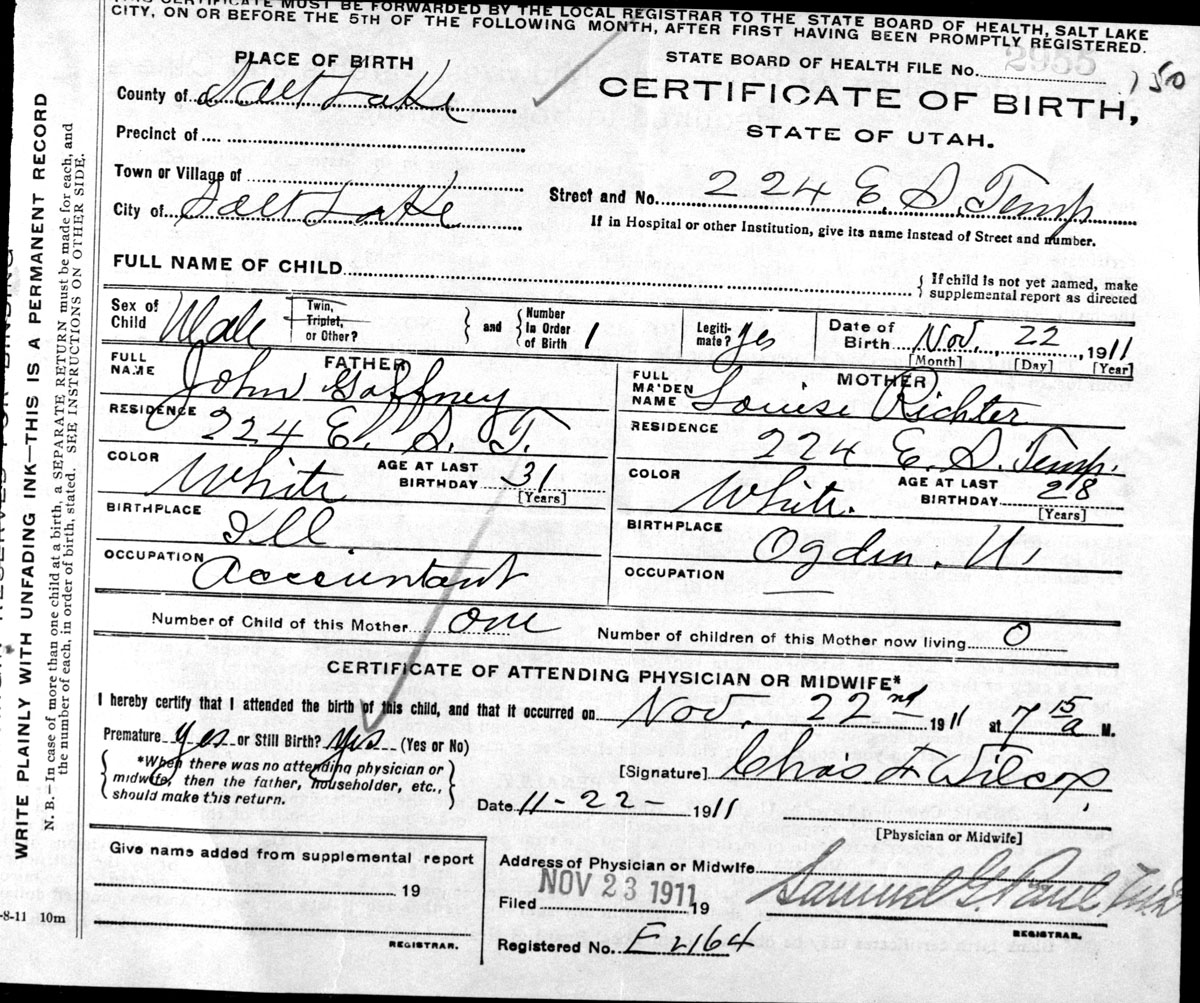 THIS CERTIFICATE MUST BE FORWARDED BY THE LOCAL REGISTRAR TO THE STATE BOARD OF HEALTH, SALT LAKE
CITY, ON OR BEFORE THE 5TH OF THE FOLLOWING MONTH, AFTER FIRST HAVING BEEN PROMPTLY REGISTERED.
PLACE OF BIRTH
STATE BOARD OF HEALTH FILE No. 2955 150
County of Salt Lake
CERTIFICATE OF BIRTH,
STATE OF UTAH.
Precinct of
Town or Village of
Street and No. 224 E. S. Temp
City of Salt Lake
If in Hospital or other Institution, give its name instead of Street and number.
FULL NAME OF CHILD
If child is not yet named, make
supplemental report as directed
Sex of Child Male
Twin, Triplet, or Other?
and
Number In Order of Birth 1
Legiti-mate? yes
Date of Birth Nov. 22, 1911
[Month] [Day] [Year]
FATHER
FULL NAME John Gaffney
RESIDENCE 224 E. S. T.
COLOR White
AGE AT LAST BIRTHDAY 31
[Years]
BIRTHPLACE Ill.
OCCUPATION Accountant
MOTHER
FULL MAIDEN NAME Louise Richter
RESIDENCE 224 E. S. Temp.
COLOR White.
AGE AT LAST BIRTHDAY 28
[Years]
BIRTHPLACE Ogden. U.
OCCUPATION —
Number of Child of this Mother one
Number of children of this Mother now living 0
CERTIFICATE OF ATTENDING PHYSICIAN OR MIDWIFE*
I hereby certify that I attended the birth of this child, and that it occurred on Nov. 22nd 1911 at 7 15 a M.
Premature yes or Still Birth? yes (Yes or No)
*When there was no attending physician or
midwife, then the father, householder, etc.,
should make this return.
[Signature] Chas F Wilcox
Date 11-22- 1911
[Physician or Midwife]
Give name added from supplemental report
19
REGISTRAR.
Address of Physician or Midwife
Filed NOV 23 1911 19
Samuel G. Paul
REGISTRAR.
Registered No. E2164
-8-11 10m
WRITE PLAINLY WITH UNFADING INK—THIS IS A PERMANENT RECORD
N. B.—In case of more than one child at a birth, a SEPARATE RETURN must be made for each, and
the number of each, in order of birth, stated. SEE INSTRUCTIONS ON OTHER SIDE.